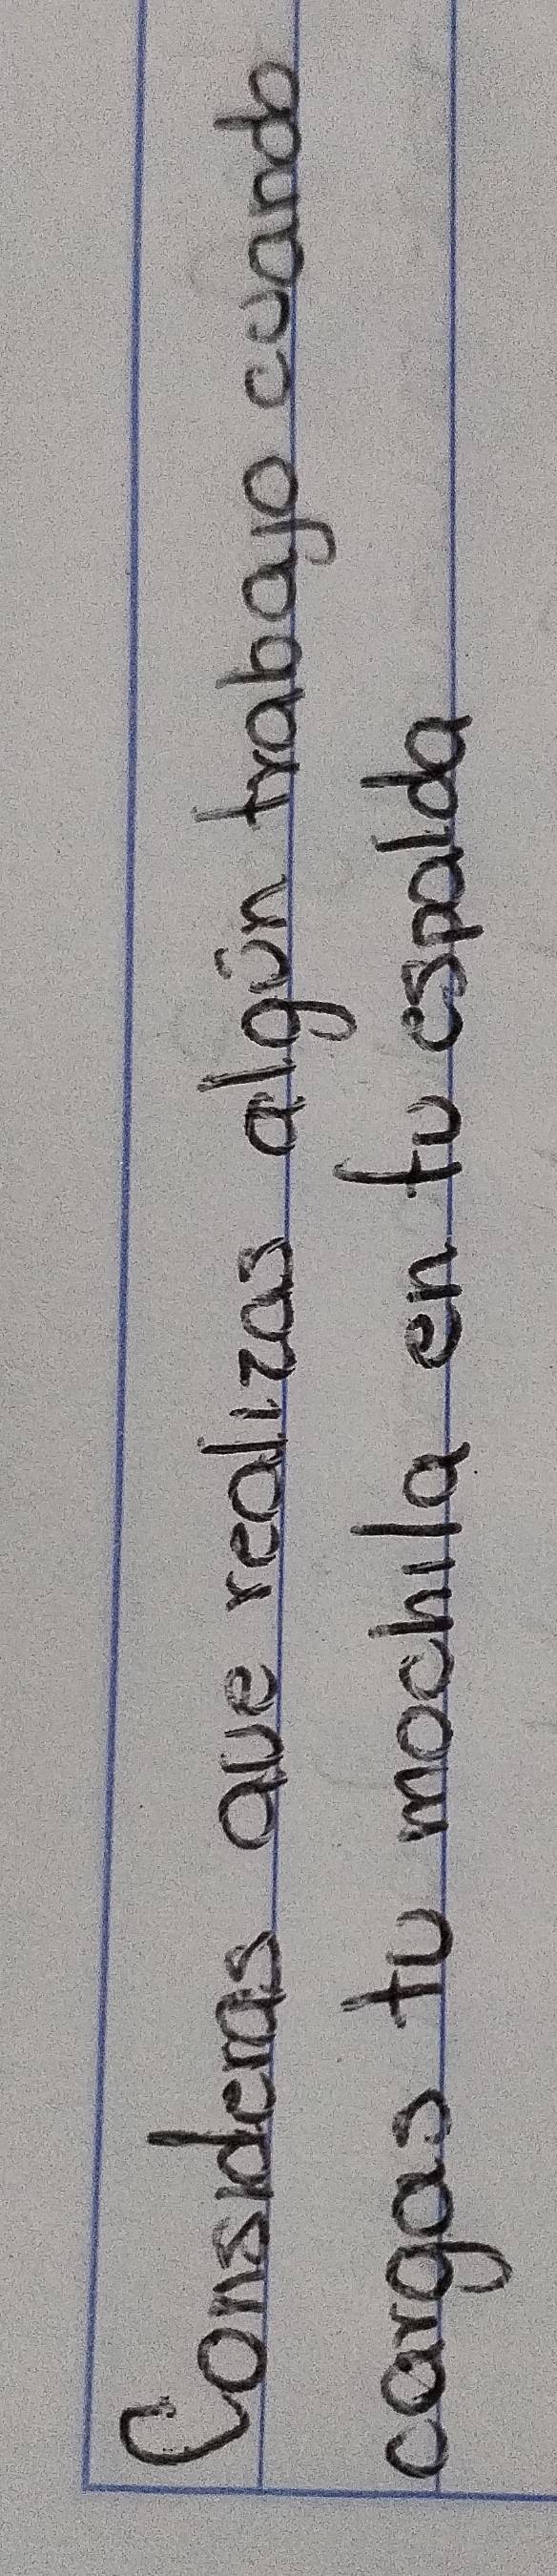 Consideras que realizas algún trabajo cuando
cargas tu mochila en tu espalda